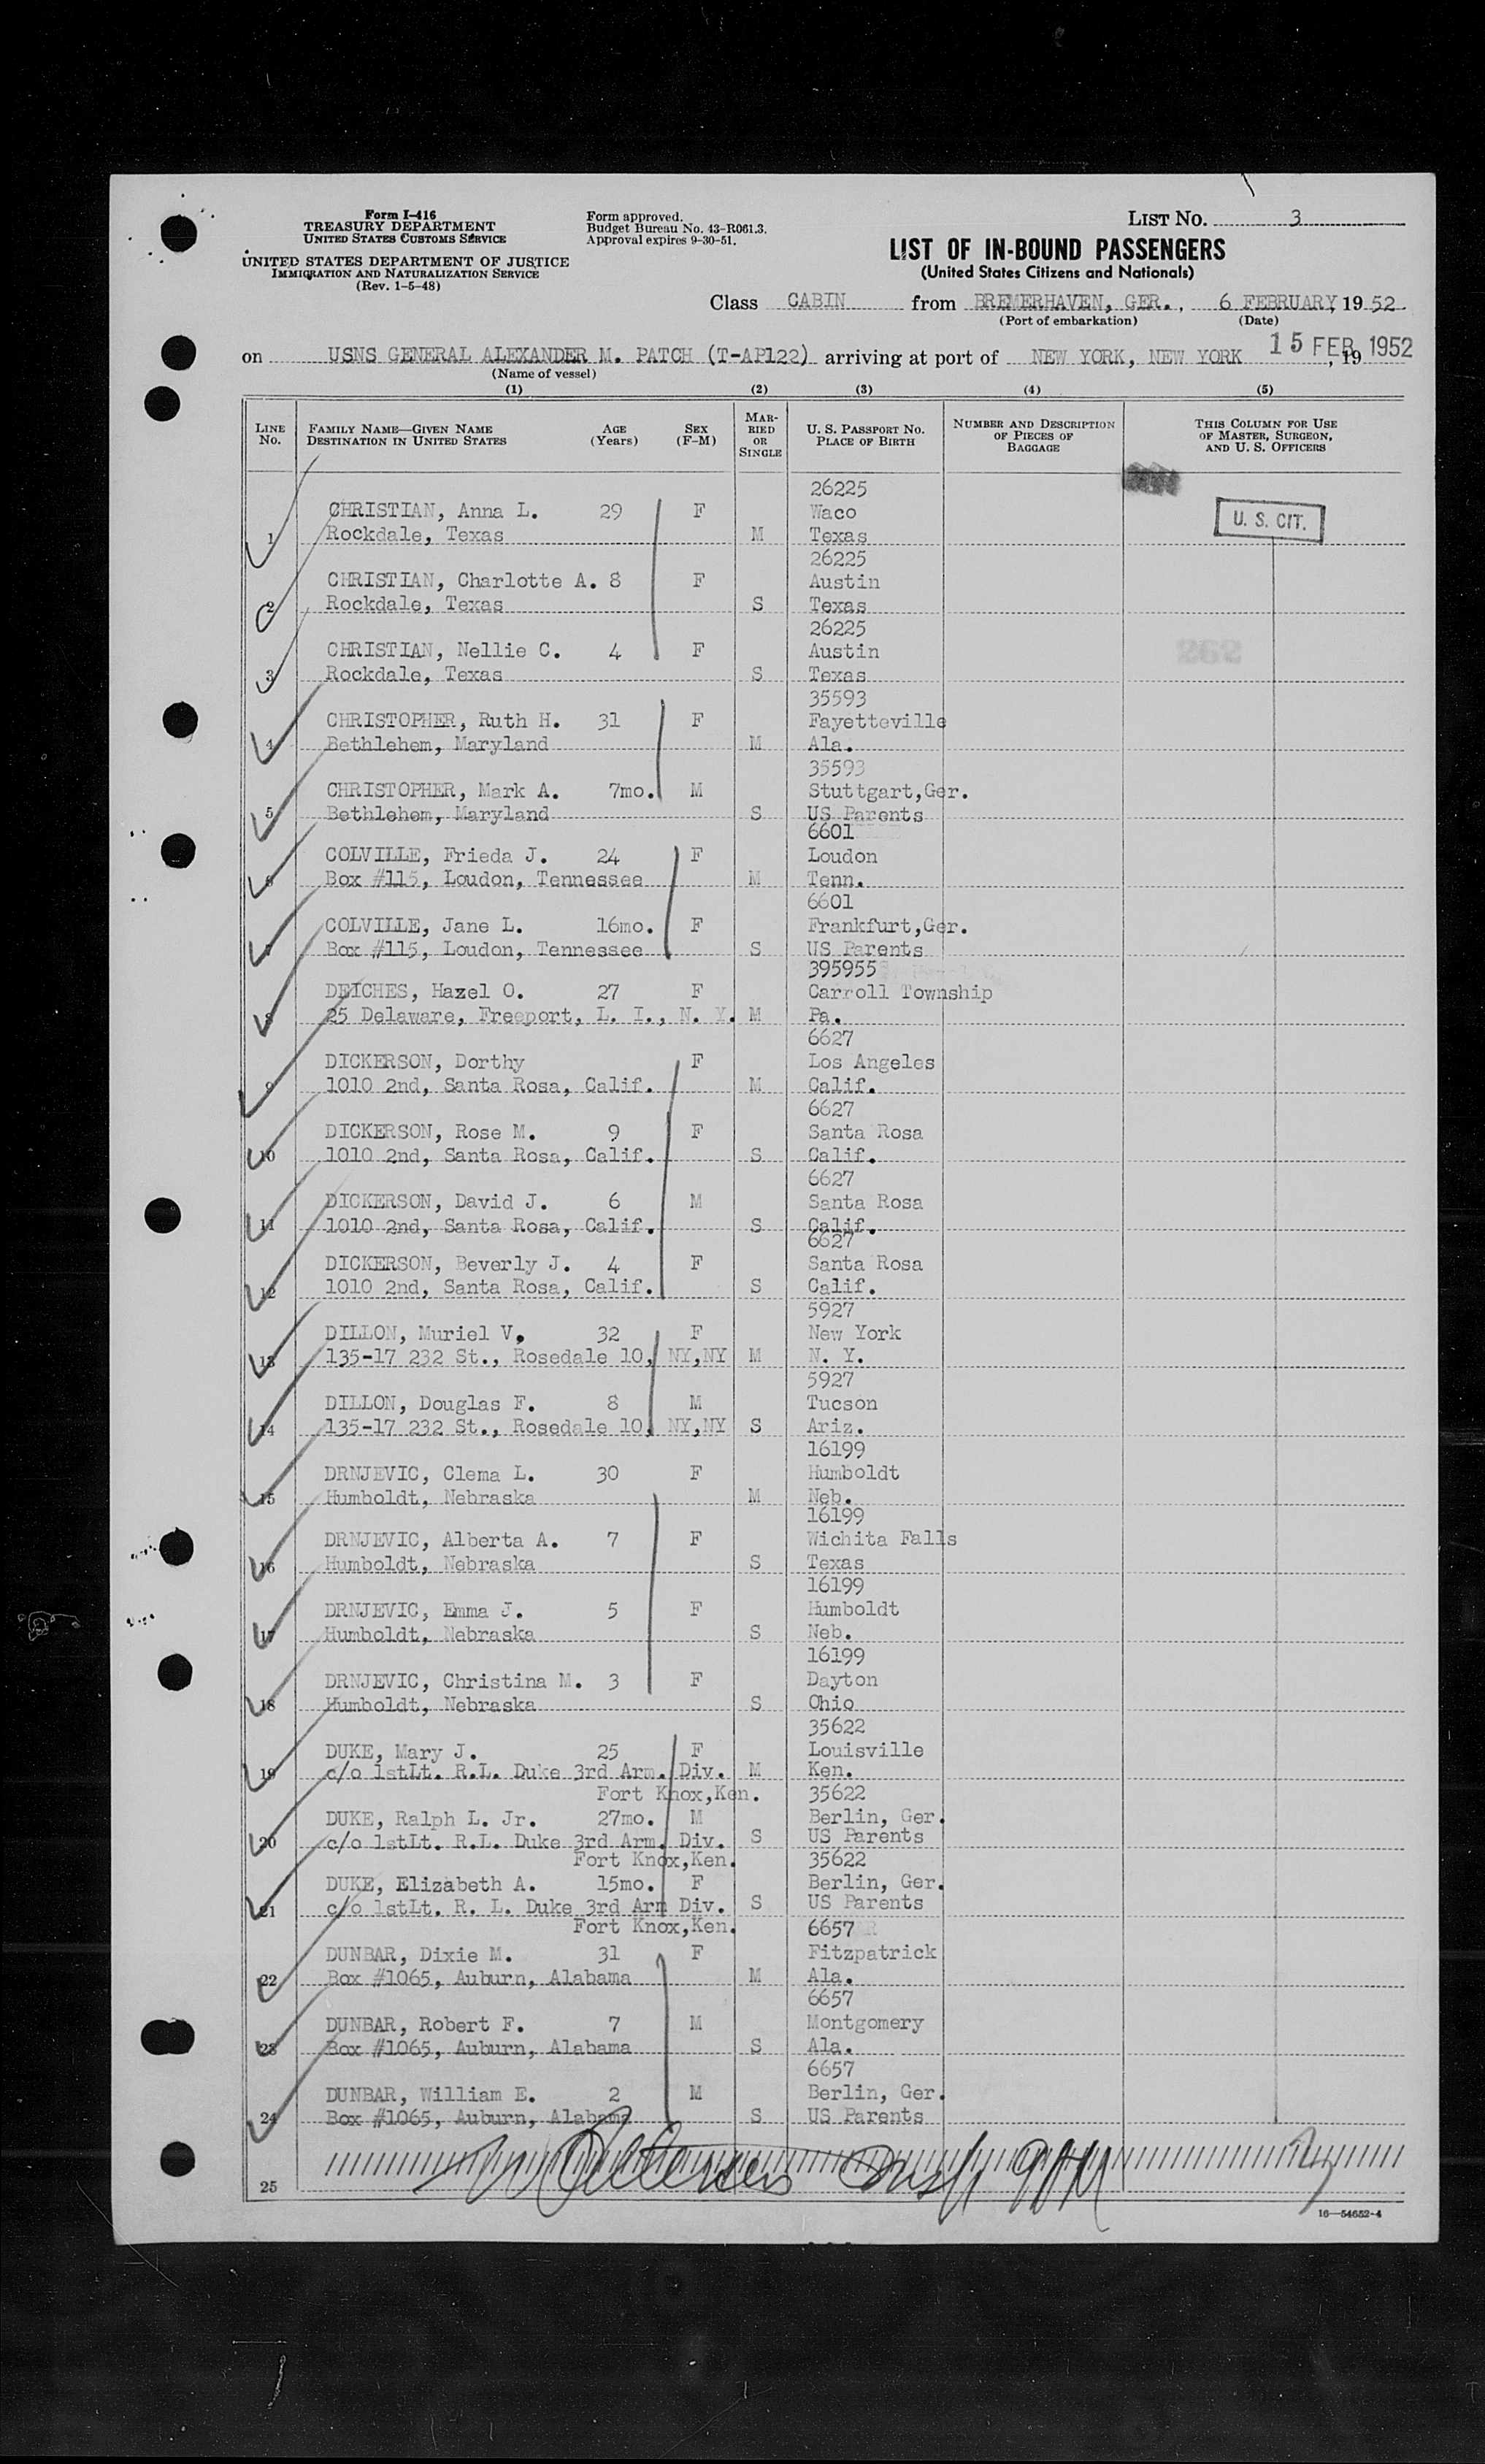 Form I-416
TREASURY DEPARTMENT
UNITED STATES CUSTOMS SERVICE
UNITED STATES DEPARTMENT OF JUSTICE
IMMIGRATION AND NATURALIZATION SERVICE
(Rev. 1-5-48)
Form approved.
Budget Bureau No. 43-R061.3.
Approval expires 9-30-51.
LIST NO. 3
LIST OF IN-BOUND PASSENGERS
(United States Citizens and Nationals)
Class CABIN from BREMERHAVEN, GER., 6 FEBRUARY, 19 52
(Port of embarkation) (Date)
on USNS GENERAL ALEXANDER M. PATCH (T-AP122) arriving at port of NEW YORK, NEW YORK 15 FEB 1952, 19
(Name of vessel)
(1) (2) (3) (4) (5)
LINE NO.
FAMILY NAME—GIVEN NAME
DESTINATION IN UNITED STATES
AGE (Years)
SEX (F-M)
MARRIED OR SINGLE
U. S. PASSPORT NO.
PLACE OF BIRTH
NUMBER AND DESCRIPTION OF PIECES OF BAGGAGE
THIS COLUMN FOR USE OF MASTER, SURGEON, AND U. S. OFFICERS
26225
CHRISTIAN, Anna L. 29 F Waco
1 Rockdale, Texas M Texas
U. S. CIT.
26225
CHRISTIAN, Charlotte A. 8 F Austin
2 Rockdale, Texas S Texas
26225
CHRISTIAN, Nellie C. 4 F Austin
262
3 Rockdale, Texas S Texas
35593
CHRISTOPHER, Ruth H. 31 F Fayetteville
4 Bethlehem, Maryland M Ala.
35593
CHRISTOPHER, Mark A. 7mo. M Stuttgart,Ger.
5 Bethlehem, Maryland S US Parents
6601
COLVILLE, Frieda J. 24 F Loudon
6 Box #115, Loudon, Tennessee M Tenn.
6601
COLVILLE, Jane L. 16mo. F Frankfurt,Ger.
7 Box #115, Loudon, Tennessee S US Parents
395955
DEICHES, Hazel O. 27 F Carroll Township
8 25 Delaware, Freeport, L. I., N. Y. M Pa.
6627
DICKERSON, Dorthy F Los Angeles
9 1010 2nd, Santa Rosa, Calif. M Calif.
6627
DICKERSON, Rose M. 9 F Santa Rosa
10 1010 2nd, Santa Rosa, Calif. S Calif.
6627
DICKERSON, David J. 6 M Santa Rosa
11 1010 2nd, Santa Rosa, Calif. S Calif.
6627
DICKERSON, Beverly J. 4 F Santa Rosa
12 1010 2nd, Santa Rosa, Calif. S Calif.
5927
DILLON, Muriel V. 32 F New York
13 135-17 232 St., Rosedale 10, NY,NY M N. Y.
5927
DILLON, Douglas F. 8 M Tucson
14 135-17 232 St., Rosedale 10, NY,NY S Ariz.
16199
DRNJEVIC, Clema L. 30 F Humboldt
15 Humboldt, Nebraska M Neb.
16199
DRNJEVIC, Alberta A. 7 F Wichita Falls
16 Humboldt, Nebraska S Texas
16199
DRNJEVIC, Emma J. 5 F Humboldt
17 Humboldt, Nebraska S Neb.
16199
DRNJEVIC, Christina M. 3 F Dayton
18 Humboldt, Nebraska S Ohio
35622
DUKE, Mary J. 25 F Louisville
19 c/o 1stLt. R.L. Duke 3rd Arm. Div. M Ken.
Fort Knox,Ken. 35622
DUKE, Ralph L. Jr. 27mo. M Berlin, Ger.
20 c/o 1stLt. R.L. Duke 3rd Arm. Div. S US Parents
Fort Knox,Ken. 35622
DUKE, Elizabeth A. 15mo. F Berlin, Ger.
21 c/o 1stLt. R. L. Duke 3rd Arm Div. S US Parents
Fort Knox,Ken. 6657
DUNBAR, Dixie M. 31 F Fitzpatrick
22 Box #1065, Auburn, Alabama M Ala.
6657
DUNBAR, Robert F. 7 M Montgomery
23 Box #1065, Auburn, Alabama S Ala.
6657
DUNBAR, William E. 2 M Berlin, Ger.
24 Box #1065, Auburn, Alabama S US Parents
25
16—54652-4